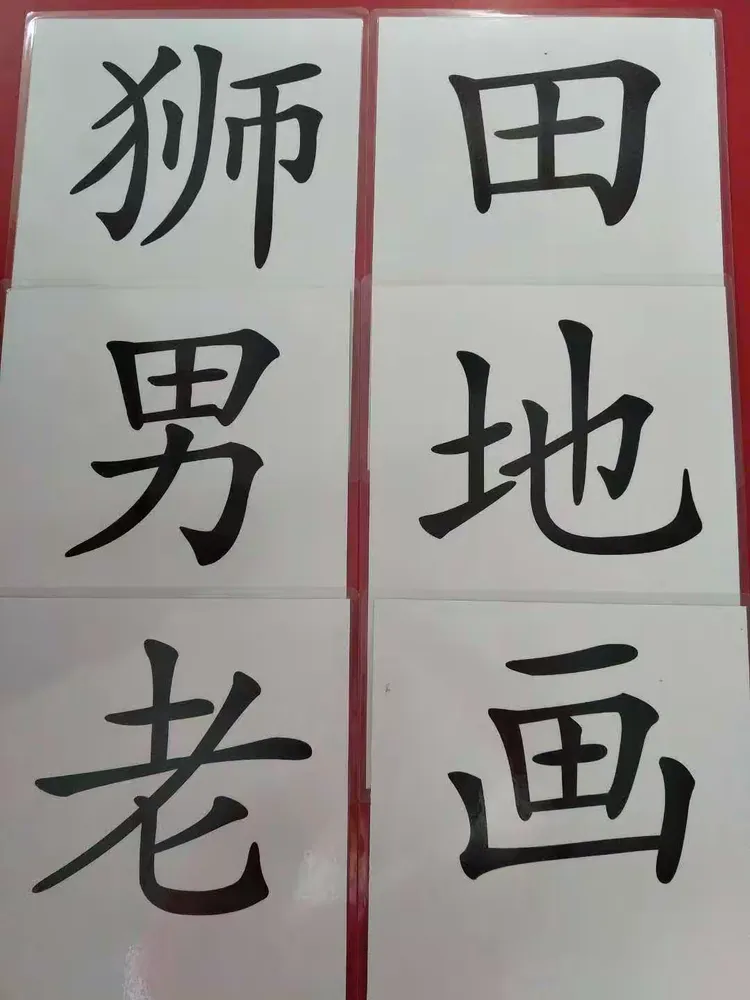 狮 田
男 地
老 画